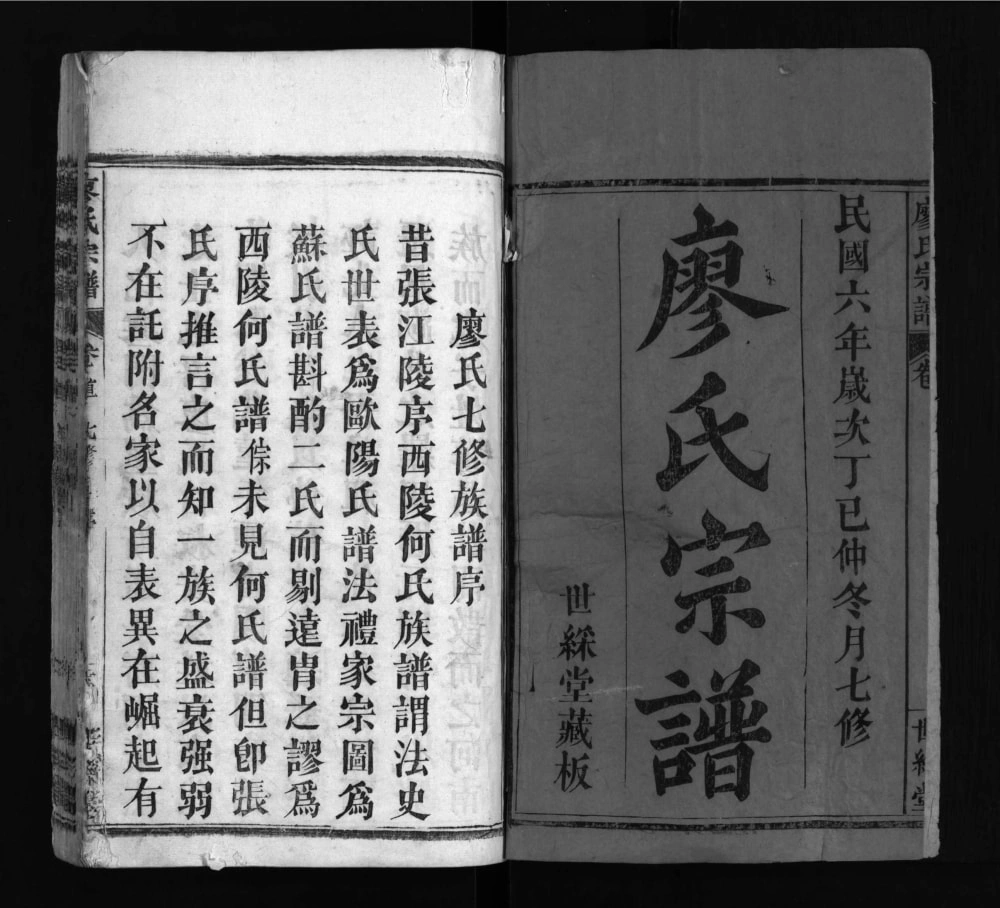 廖氏宗譜
世綵堂
民國六年歲次丁巳仲冬月七修
廖氏宗譜
世綵堂藏板
廖氏七修族譜序
昔張江陵序西陵何氏族譜謂法史
氏世表爲歐陽氏譜法禮家宗圖爲
蘇氏譜斟酌二氏而剔遠胄之謬爲
西陵何氏譜倧未見何氏譜但卽張
氏序推言之而知一族之盛衰强弱
不在託附名家以自表異在崛起有
氏宗譜